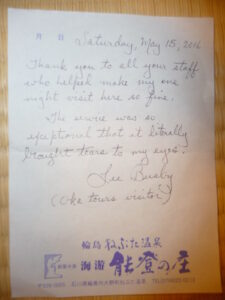 月 日 Saturday, May 15, 2016
Thank you to all your staff
who helped make my one
night visit here so fine.
The service was so
exceptional that it literally
brought tears to my eyes.
Lee Busby
(Oka tours visitor)
輪島 ねぶた温泉
海游 能登の庄